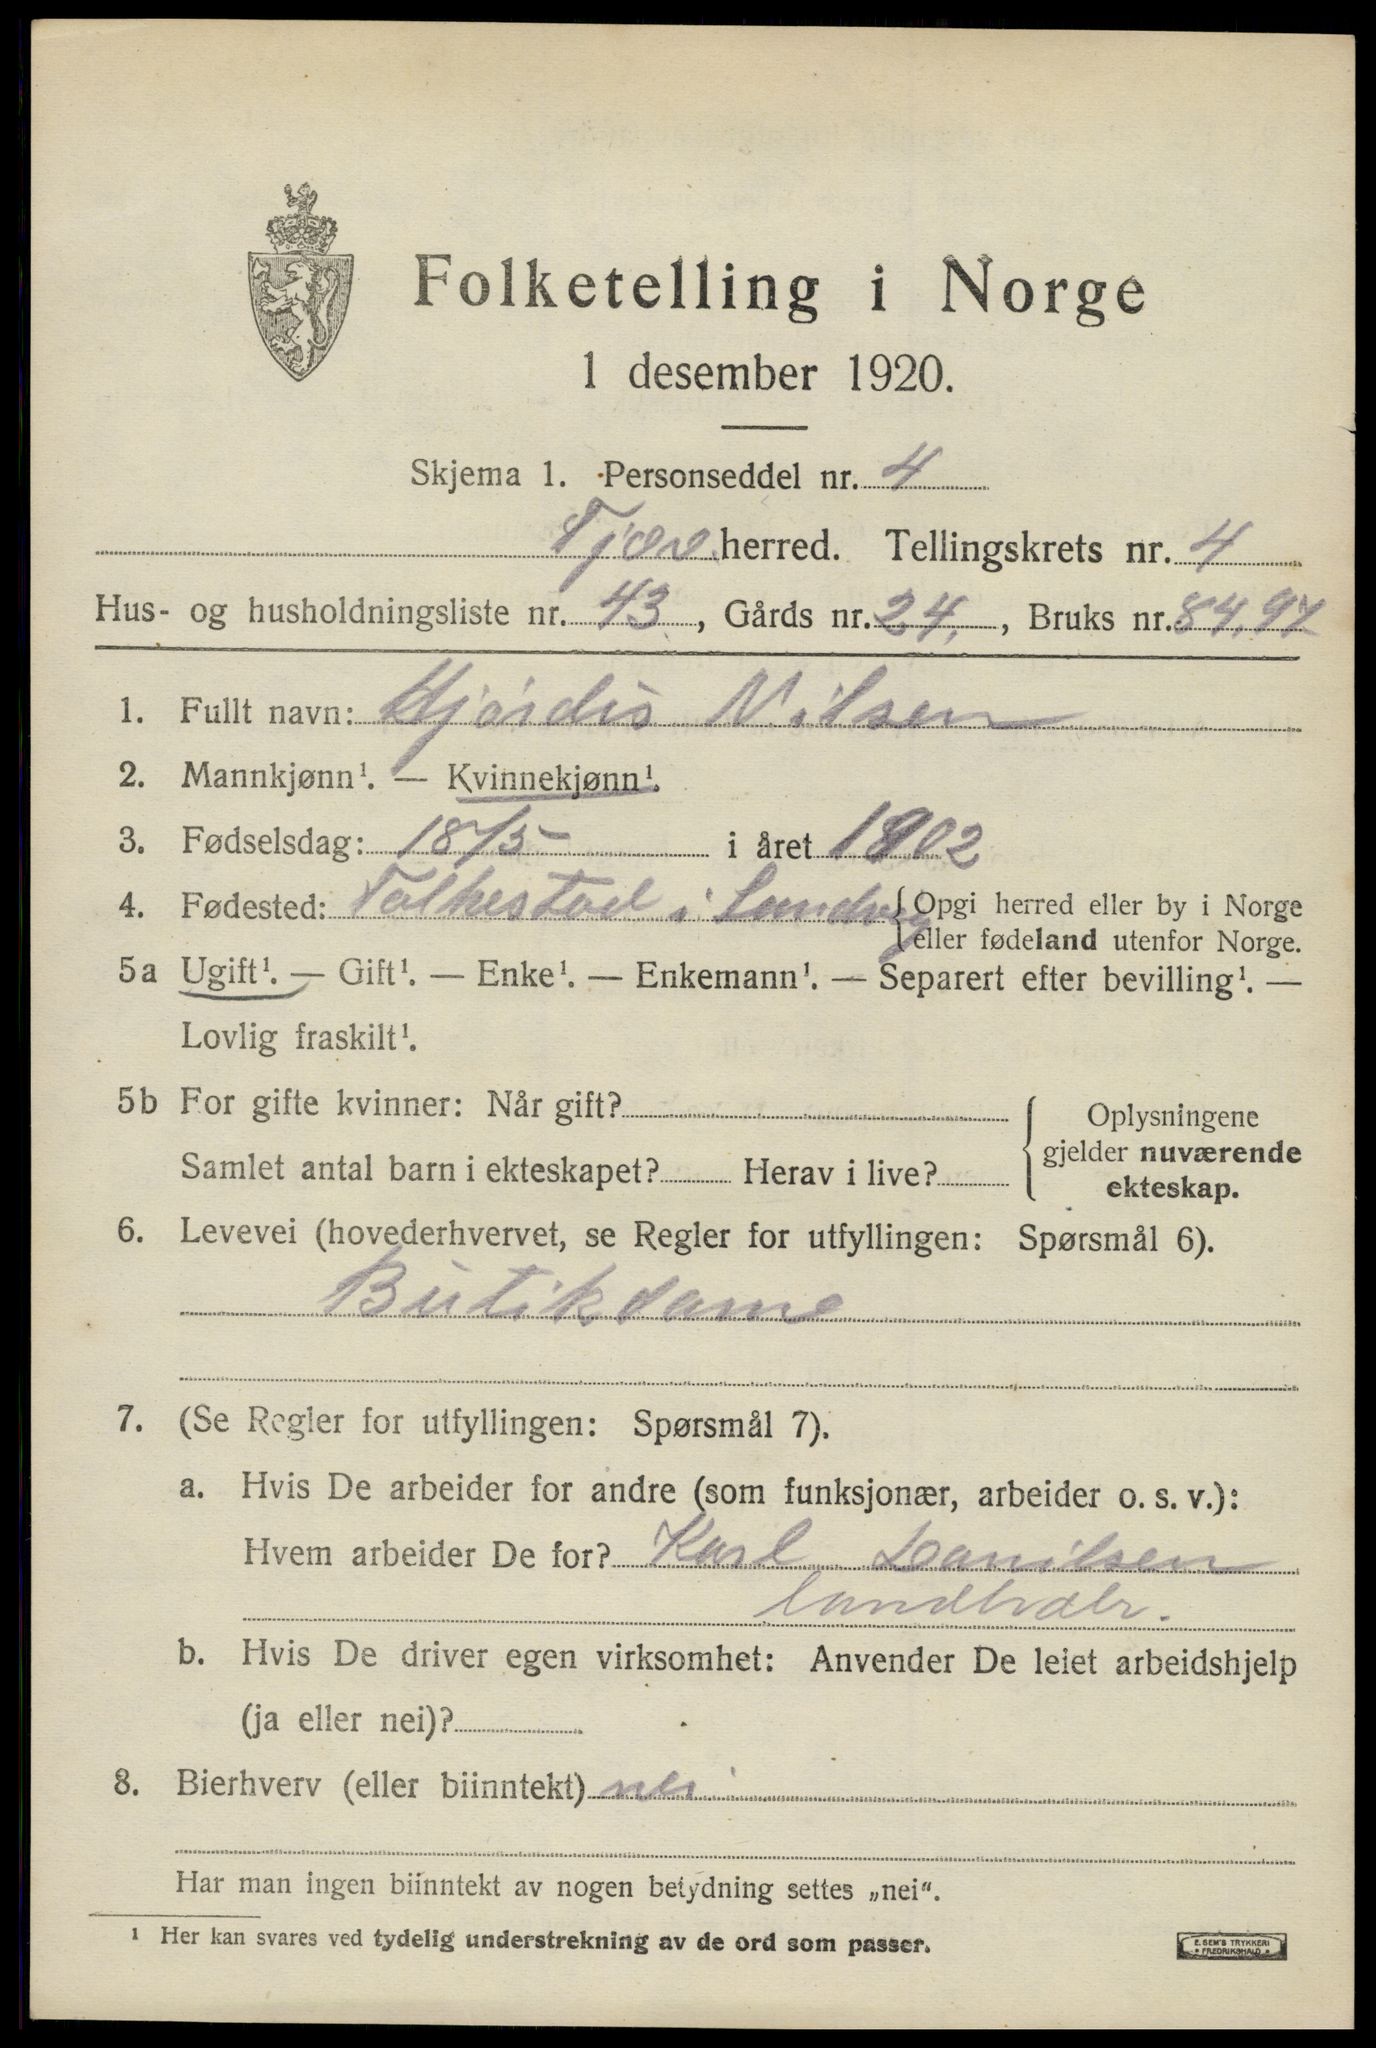 Folketelling i Norge
1 desember 1920.
Skjema 1. Personseddel nr. 4
Tjøme herred. Tellingskrets nr. 4
Hus- og husholdningsliste nr. 43, Gårds nr. 24, Bruks nr. 84,97
1. Fullt navn: Hjørdis Nilsen
2. Mannkjønn¹. — Kvinnekjønn¹.
3. Fødselsdag: 18/5 i året 1902
4. Fødested: i {Opgi herred eller by i Norge
eller fødeland utenfor Norge.
5a Ugift¹. — Gift¹. — Enke¹. — Enkemann¹. — Separert efter bevilling¹. —
Lovlig fraskilt¹.
5b For gifte kvinner: Når gift? { Oplysningene
gjelder nuværende
Samlet antal barn i ekteskapet? Herav i live?
ekteskap.
6. Levevei (hovederhvervet, se Regler for utfyllingen: Spørsmål 6).
Butikdame
7. (Se Regler for utfyllingen: Spørsmål 7).
a. Hvis De arbeider for andre (som funksjonær, arbeider o. s. v.):
Hvem arbeider De for? Karl Danilsen
landhdlr.
b. Hvis De driver egen virksomhet: Anvender De leiet arbeidshjelp
(ja eller nei)?
8. Bierhverv (eller biinntekt) nei
Har man ingen biinntekt av nogen betydning settes „nei".
¹ Her kan svares ved tydelig understrekning av de ord som passer.
E. SEM'S TRYKKERI
FREDRIKSHALD